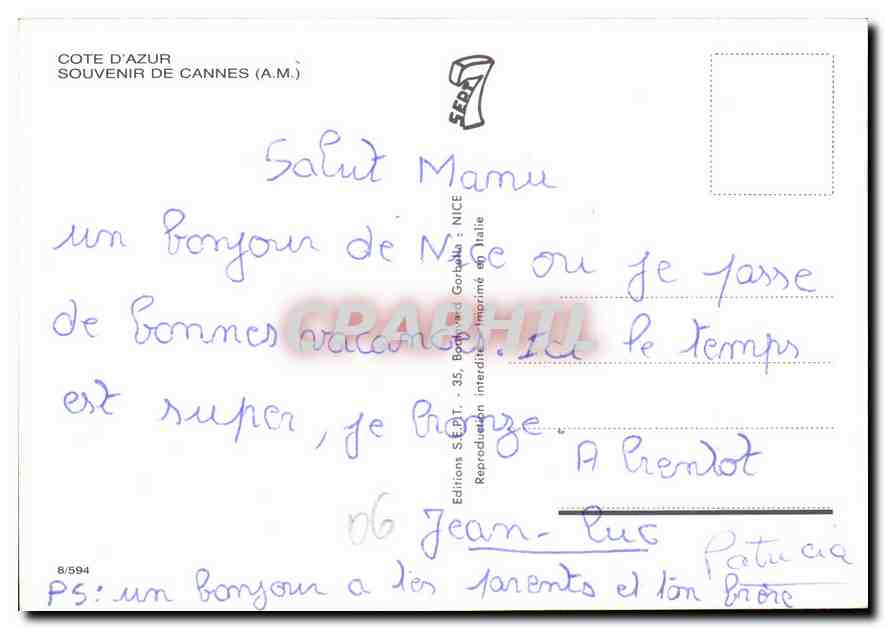 COTE D'AZUR
SOUVENIR DE CANNES (A.M.)
SEPT
7
Salut Manu
un bonjour de Nice ou je passe
de bonnes vacances. Ici le temps
est super, je bronze.
A bientot
06
Jean-Luc
Patricia
8/594
PS: un bonjour a tes parents et ton frère
Editions S.E.P.T. - 35, Boulevard Gorbella : NICE
Reproduction interdite - Imprimé en Italie
CPAPHIL